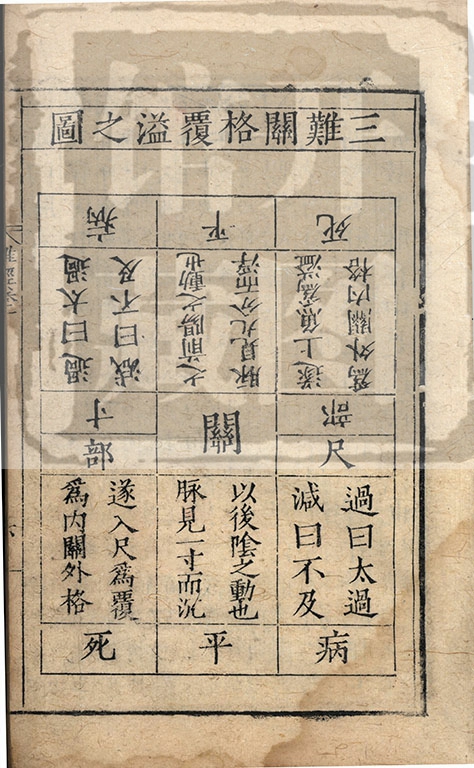 三難關格覆溢之圖
病
過曰太過
減曰不及
平
之前陽之動也
脉見九分而浮
死
遂上魚為溢
為外關內格
寸部
關
尺部
過曰太過
減曰不及
病
以後陰之動也
脉見一寸而沉
平
遂入尺為覆
為內關外格
死